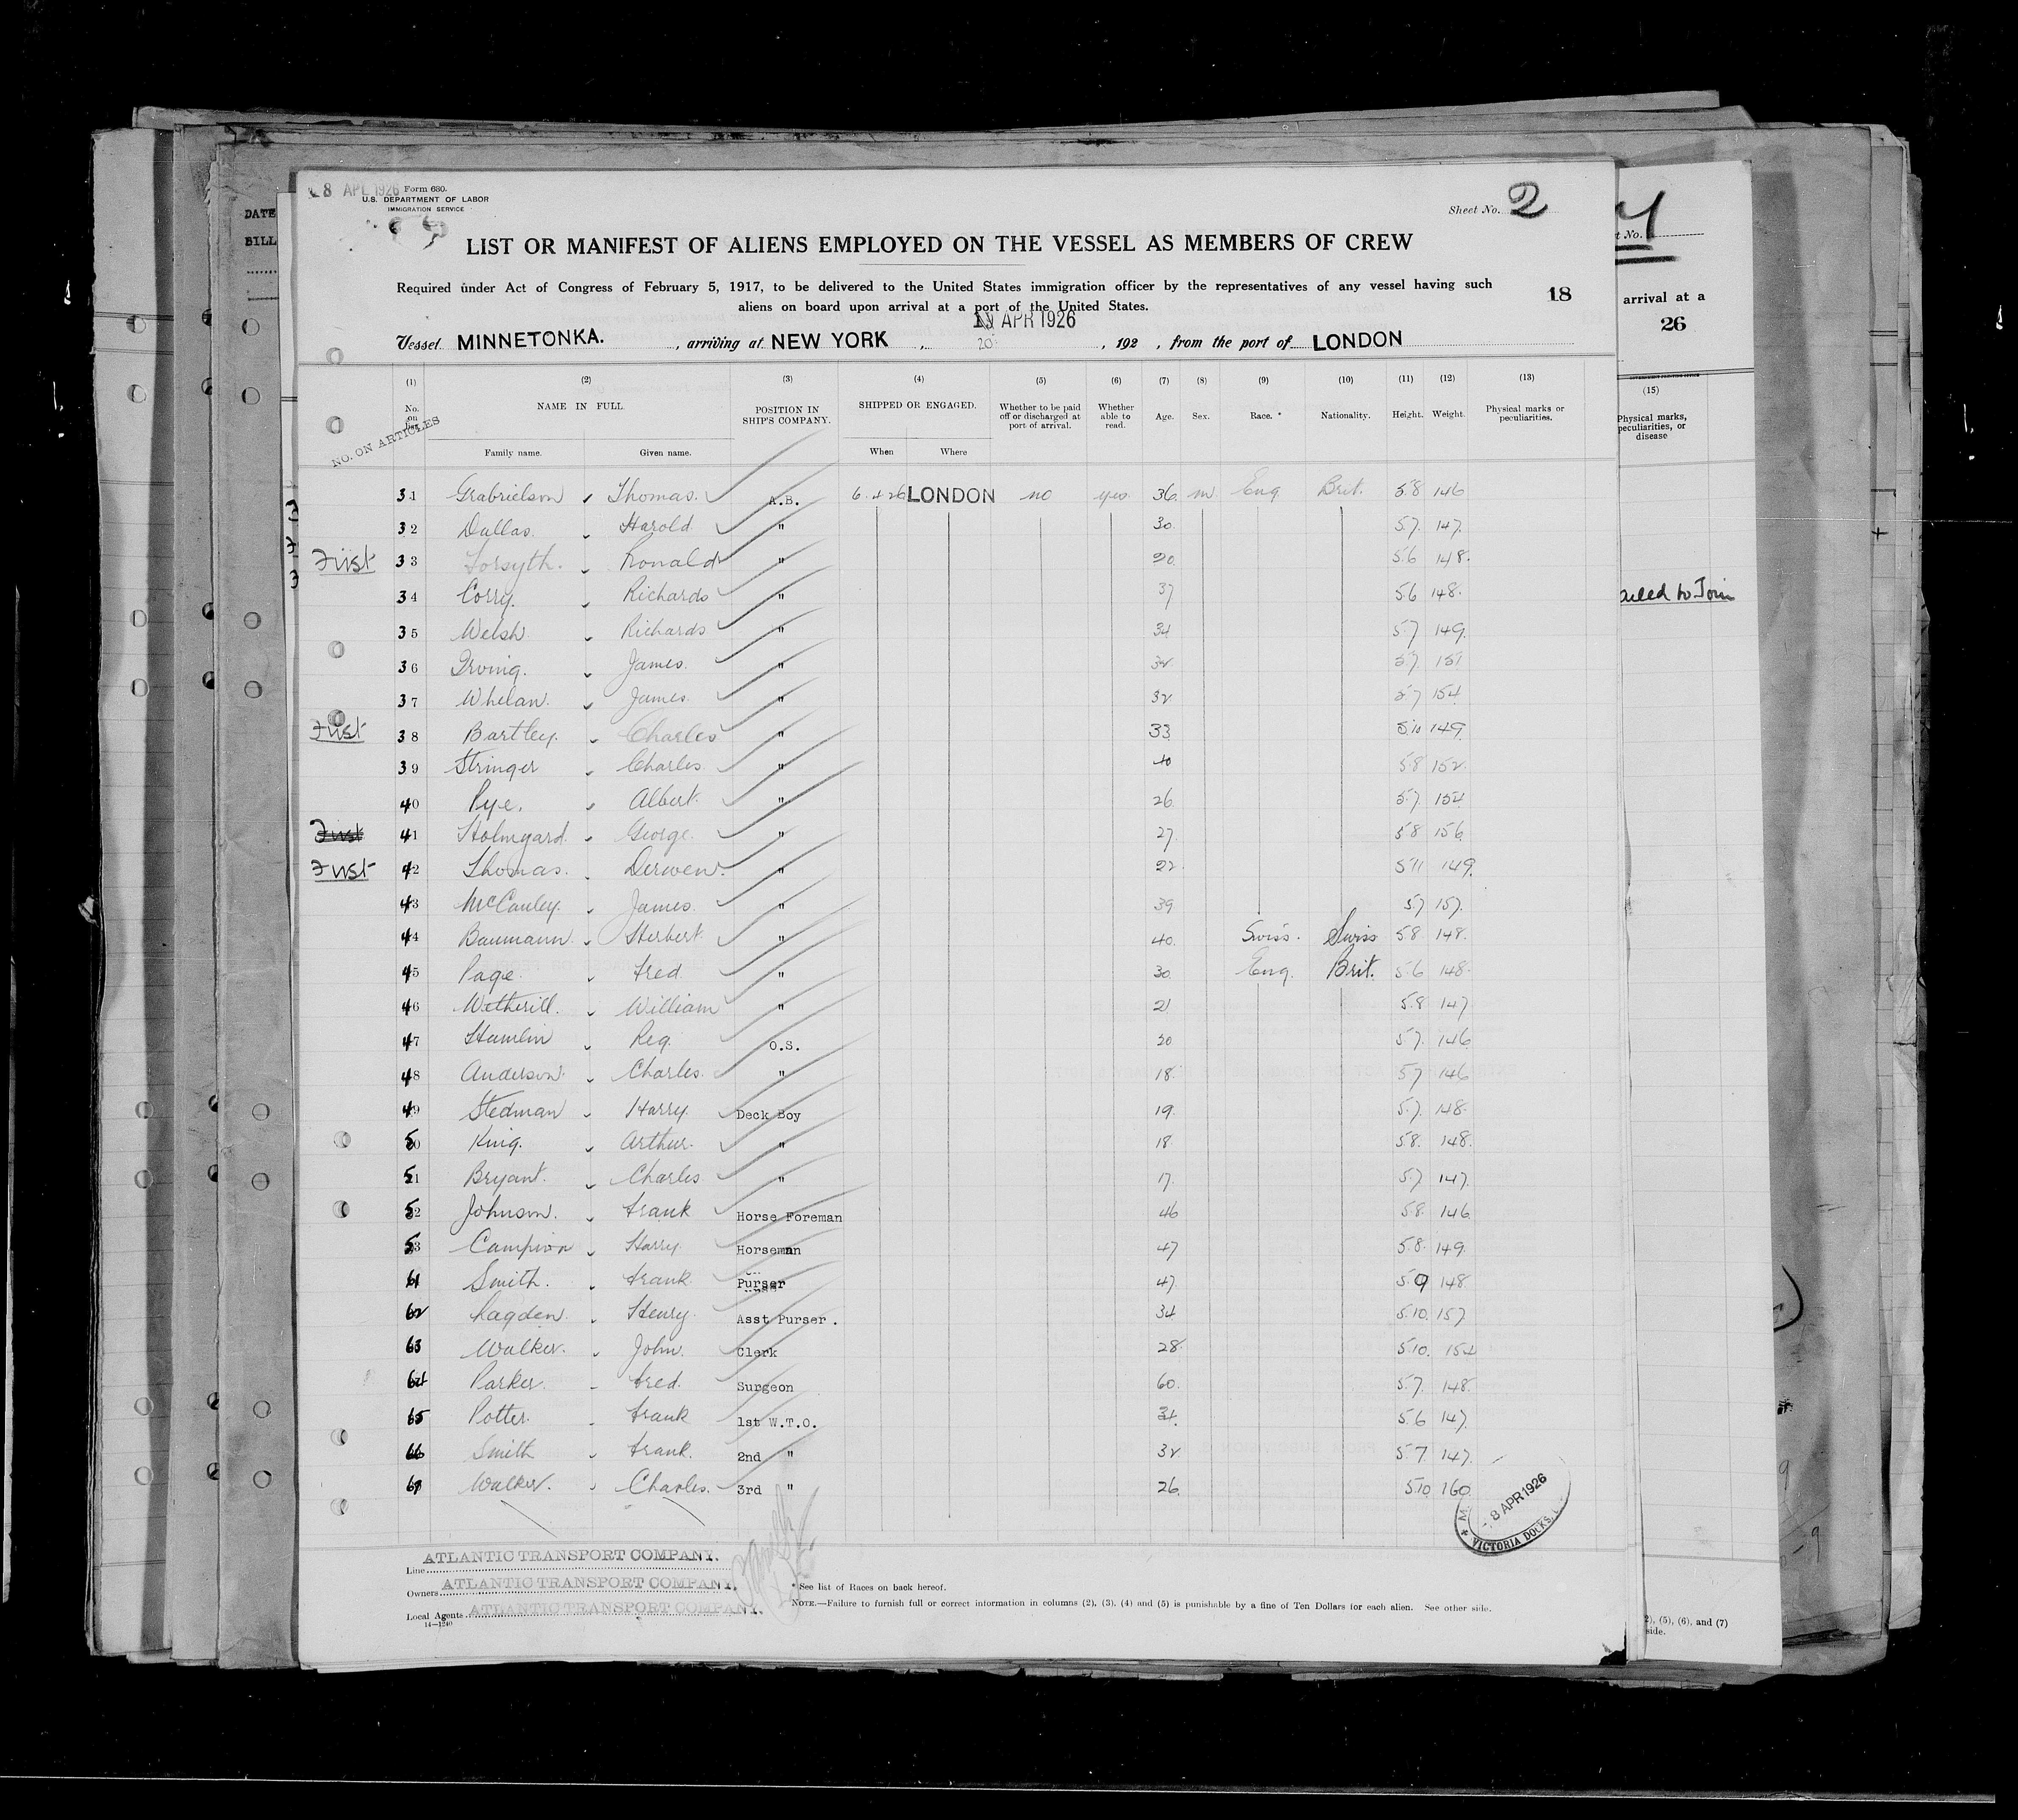 8 APL 1926 Form 680.
U.S. DEPARTMENT OF LABOR
IMMIGRATION SERVICE
Sheet No. 2
LIST OR MANIFEST OF ALIENS EMPLOYED ON THE VESSEL AS MEMBERS OF CREW
Required under Act of Congress of February 5, 1917, to be delivered to the United States immigration officer by the representatives of any vessel having such
aliens on board upon arrival at a port of the United States.
18
APR 1926
Vessel MINNETONKA. , arriving at NEW YORK , 20 , 192 , from the port of LONDON
(1) (2) (3) (4) (5) (6) (7) (8) (9) (10) (11) (12) (13)
No. on list NAME IN FULL. POSITION IN SHIP'S COMPANY. SHIPPED OR ENGAGED. Whether to be paid off or discharged at port of arrival. Whether able to read. Age. Sex. Race. * Nationality. Height. Weight. Physical marks or peculiarities.
NO. ON ARTICLES
Family name. Given name. When Where
31 Grabrielson Thomas. A.B. 6.4.26 LONDON no yes 36 m. Eng Brit. 5.8 146
32 Dallas. Harold " 30. 5.7. 147.
First 33 Forsyth. Ronald " 20. 5.6 148.
34 Corry. Richards " 37 5.6 148.
35 Welsh Richards " 34 5.7 149.
36 Irving. James. " 32 5.7. 151
37 Whelan. James. " 32 5.7 154
First 38 Bartley. Charles " 33. 5.10 149.
39 Stringer Charles. " 40 5.8 152.
40 Pye. Albert. " 26. 5.7. 154
First 41 Holmgard. George. " 27. 5.8 156
First 42 Thomas. Derwen. " 22. 5.11 149.
43 McCauley. James. " 39 5.7 157.
44 Baumann. Herbert. " 40. Swiss. Swiss 5.8 148.
45 Page Fred. " 30. Eng. Brit. 5.6 148.
46 Wetherill. William " 21 5.8 147
47 Hamlin Reg. O.S. 20 5.7. 146
48 Anderson. Charles. " 18. 5.7 146
49 Stedman Harry. Deck Boy 19. 5.7. 148.
50 King. Arthur. " 18. 5.8. 148.
51 Bryant. Charles " 17. 5.7 147.
52 Johnson. Frank Horse Foreman 46 5.8. 146
53 Campion Harry. Horseman 47 5.8. 149.
61 Smith. Frank. Purser 47. 5.9 148
62 Lagden. Henry. Asst Purser. 34 5.10. 157
63 Walker. John. Clerk 28. 5.10. 154
64 Parker. Fred. Surgeon 60. 5.7. 148.
65 Potter. Frank 1st W.T.O. 31. 5.6 147.
66 Smith Frank. 2nd " 32. 5.7. 147.
67 Walker. Charles. 3rd " 26. 5.10 160
8 APR 1926
VICTORIA DOCKS
Line ATLANTIC TRANSPORT COMPANY.
Owners ATLANTIC TRANSPORT COMPANY.
Local Agents ATLANTIC TRANSPORT COMPANY.
14—1240
* See list of Races on back hereof.
NOTE.—Failure to furnish full or correct information in columns (2), (3), (4) and (5) is punishable by a fine of Ten Dollars for each alien. See other side.
DATE
BILL
t No.
arrival at a
26
(15)
Physical marks,
peculiarities, or
disease
ailed to Join
2), (5), (6), and (7)
side.